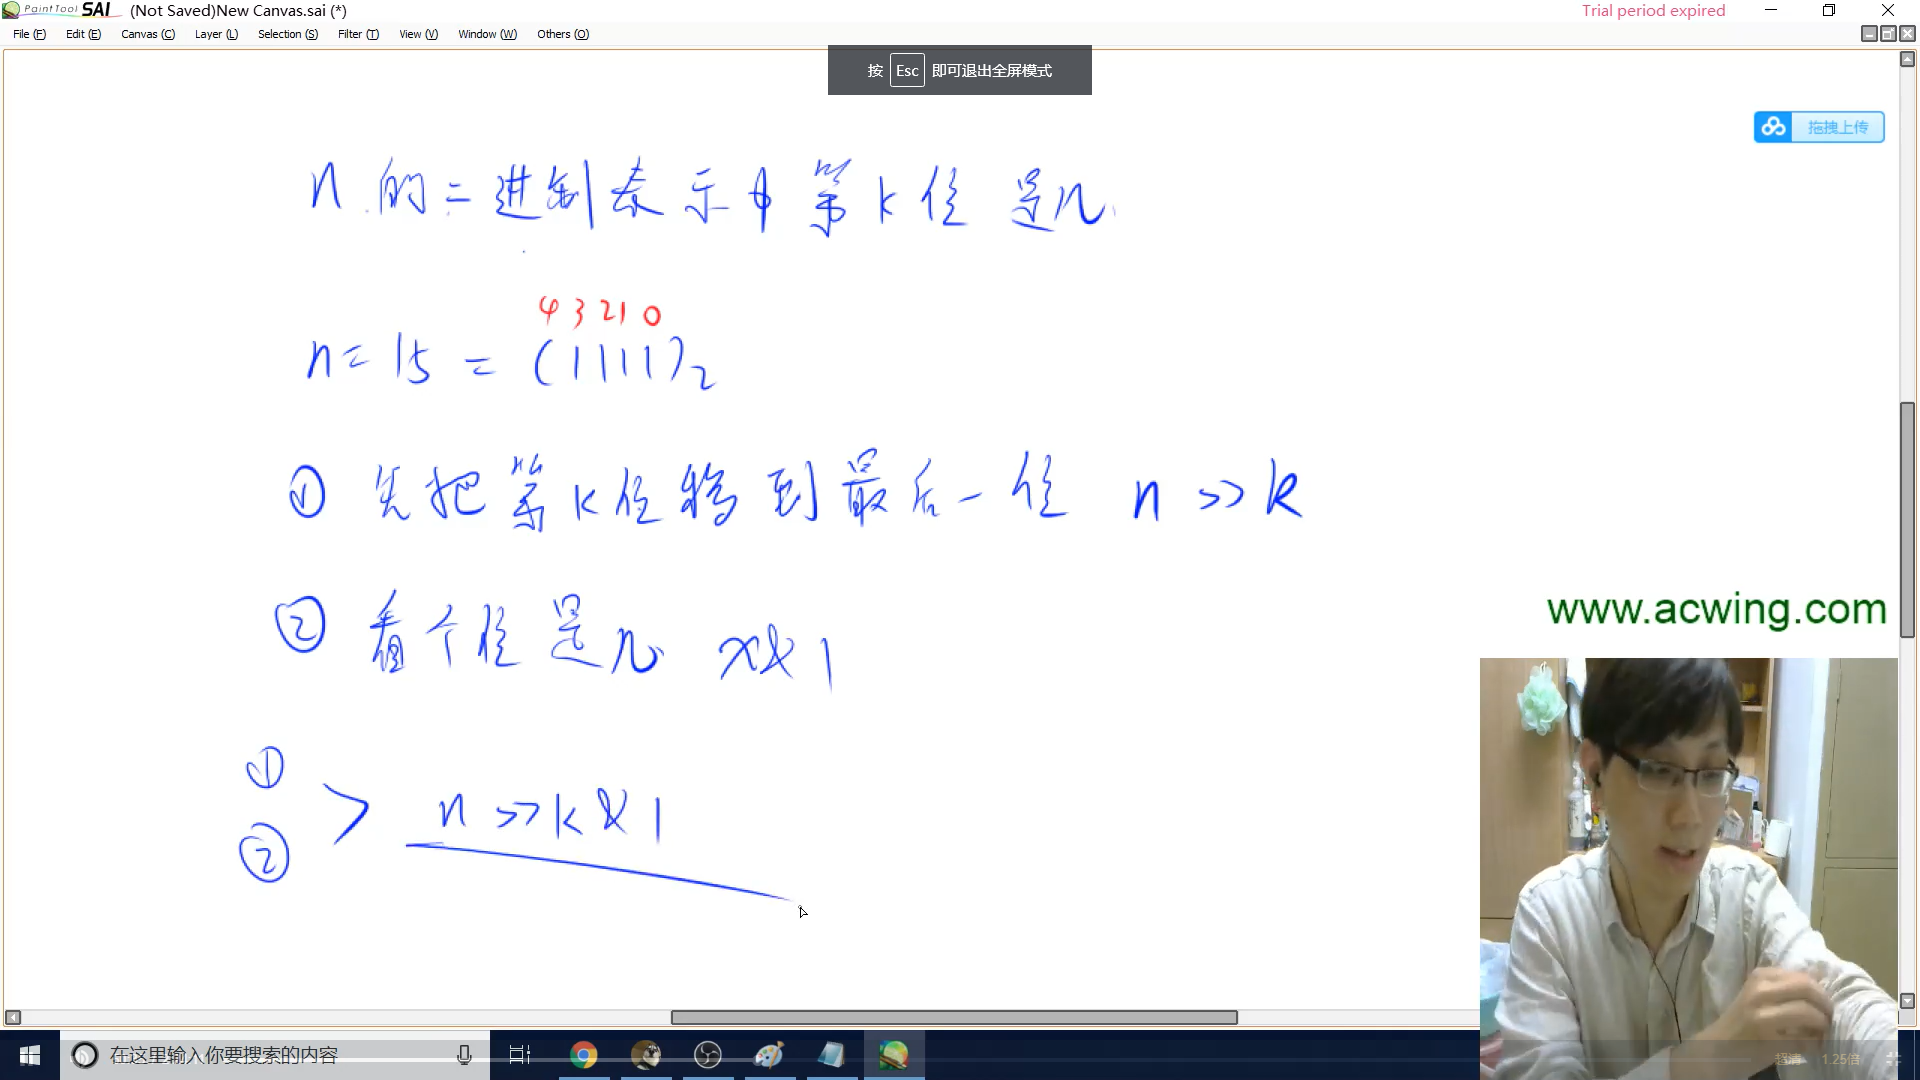 PaintTool SAI (Not Saved)New Canvas.sai (*) Trial period expired
File (F) Edit (E) Canvas (C) Layer (L) Selection (S) Filter (T) View (V) Window (W) Others (O)
按 Esc 即可退出全屏模式
拖拽上传
n 的二进制表示中第 k 位是几
4 3 2 1 0
n = 15 = (1111)2
① 先把第k位移到最后一位 n >> k
② 看个位是几 x & 1
www.acwing.com
①
② > n >> k & 1
在这里输入你要搜索的内容
超清 1.25倍